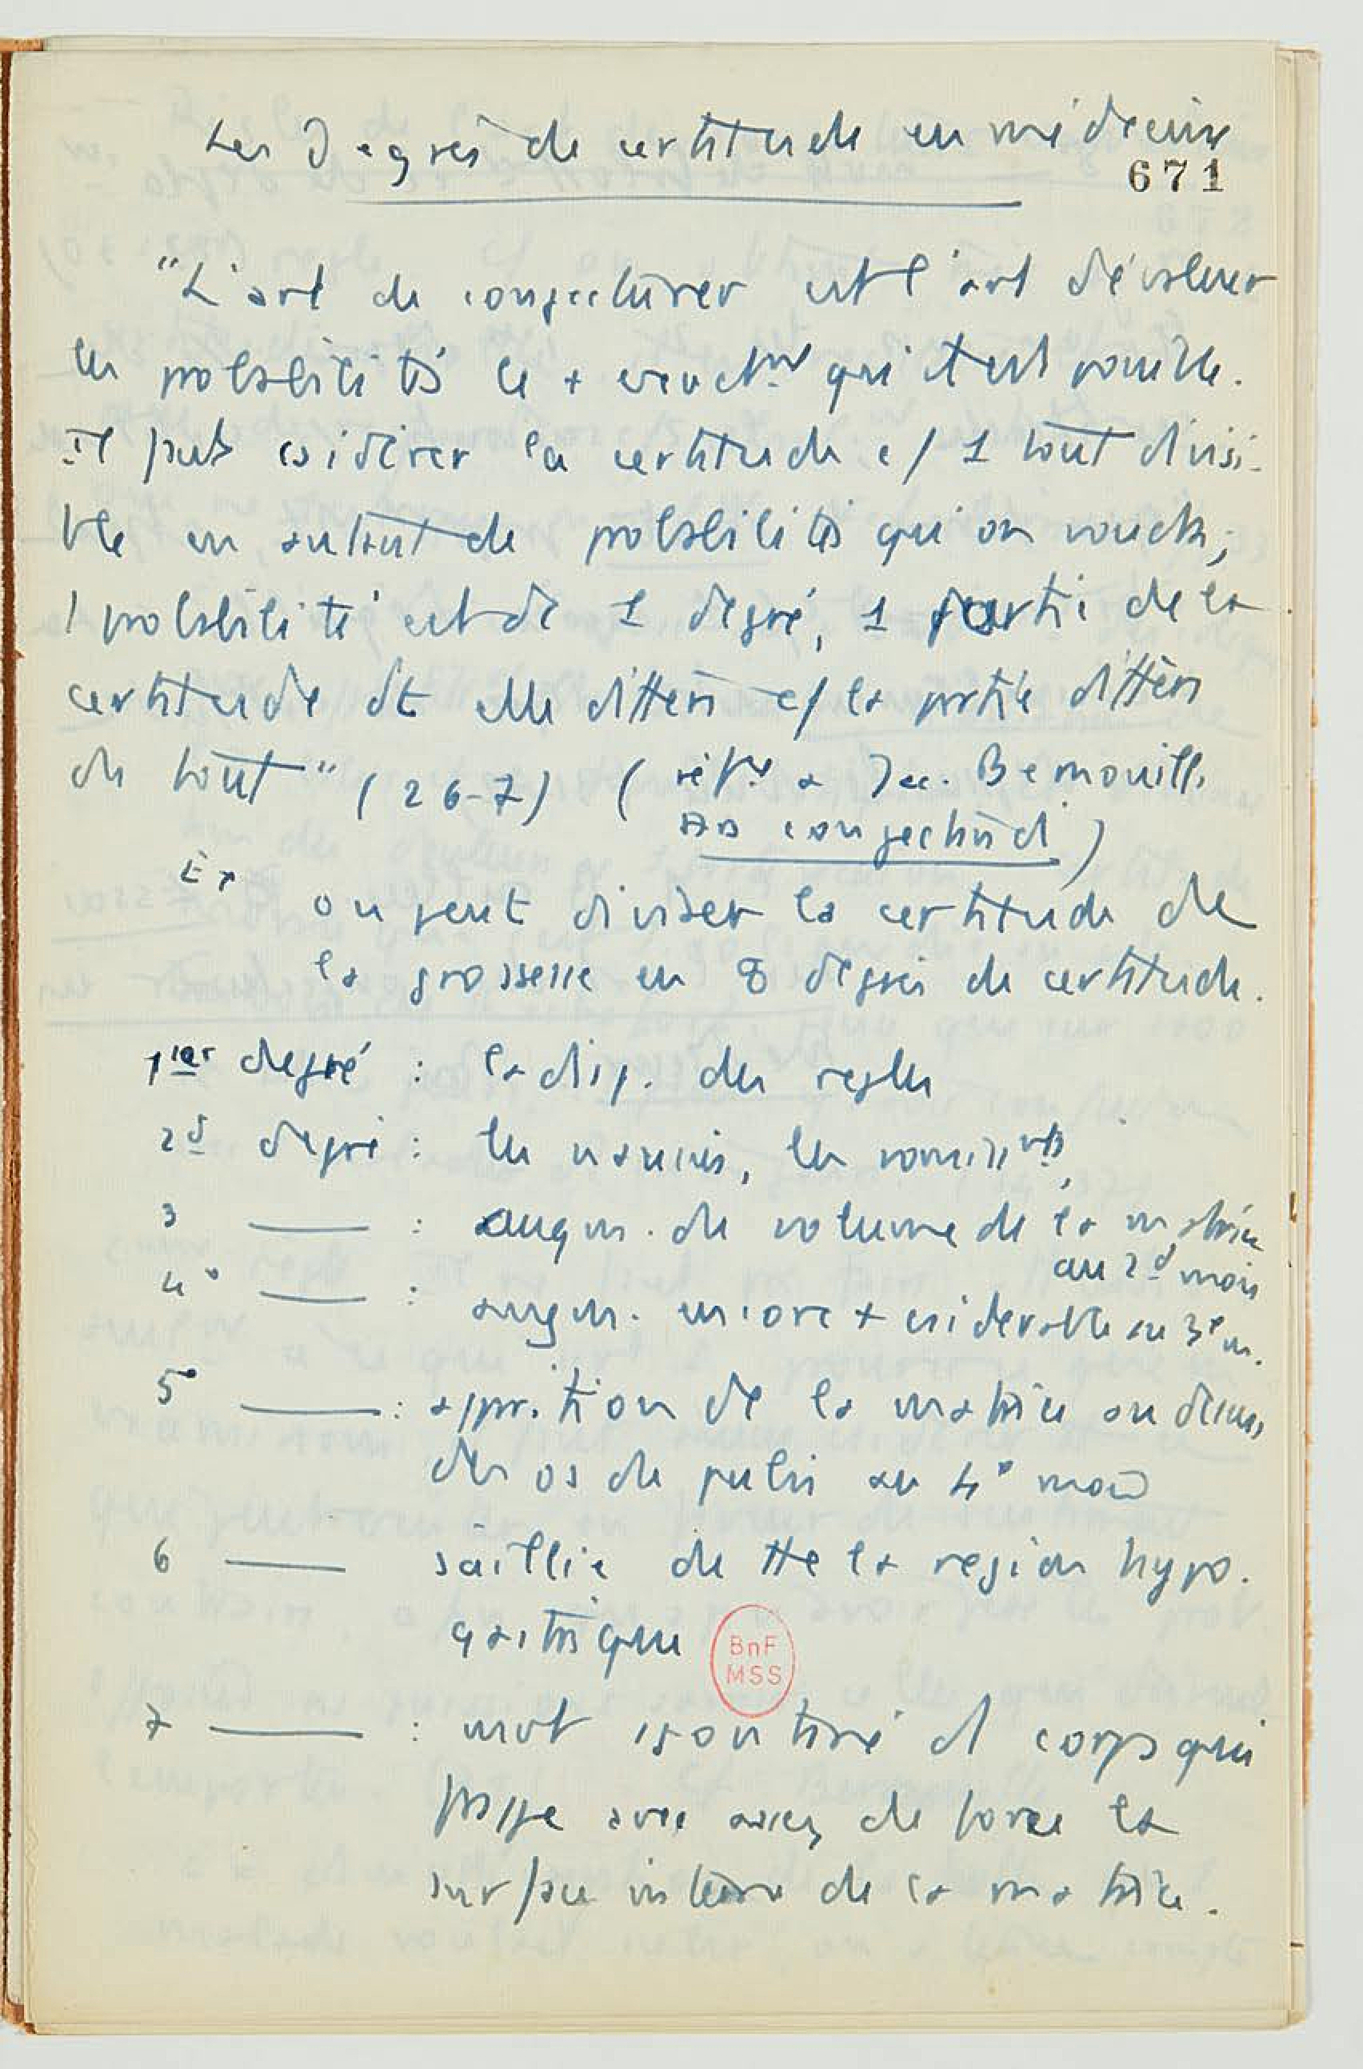 Les Degrés de certitude en médecine
671
"L'art de conjecturer est l'art d'évaluer
les probabilités le + exactmt qu'il est possible.
Il faut csidérer la certitude c/ 1 tout divisi-
ble en autant de probabilités qu'on voudra;
1 probabilité est de 1 degré, 1 partie de la
certitude dt elle diffère c/ la partie diffère
du tout" (26-7) (réfce à Jac. Bernouilli
Ars conjectandi)
Ex
on peut diviser la certitude de
la grossesse en 8 degrés de certitude.
1ier degré : la disp. des règles
2d degré : les nausées, les vomissmts,
3 — : augm. du volume de la matrice
au 2d mois
4° — : augm. encore + csidérable au 3e m.
5° — : apparition de la matrice au dessus
des os du pubis au 4° mois
6 — saillie de tte la région hypo-
gastrique
7 — : mvt spontané d' corps qui
frappe avec assez de force la
surface interne de la matrice.
BnF
MSS